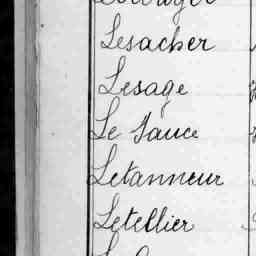 Lesacher
Lesage
Le Sauce
Letanneur
Letellier